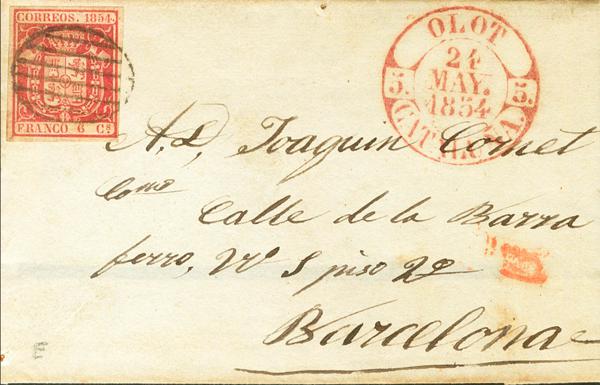 CORREOS. 1854.
FRANCO 6 Cs
OLOT
24
MAY.
1854
5. 5.
CATALUÑA.
A. D, Joaquin Cornet
Como
Calle de la Barra
ferro, Nº 8 piso 2º
Barcelona